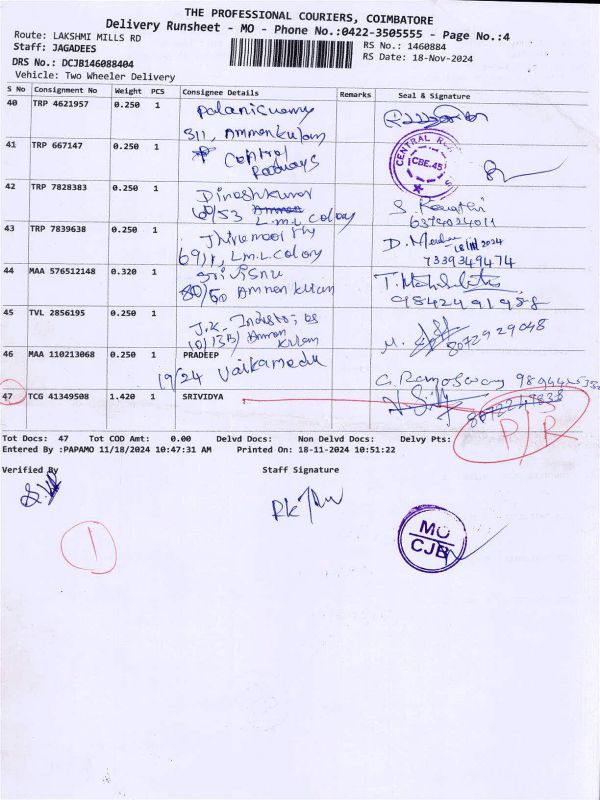 THE PROFESSIONAL COURIERS, COIMBATORE
Delivery Runsheet - MO - Phone No.:0422-3505555 - Page No.:4
Route: LAKSHMI MILLS RD
Staff: JAGADEES
RS No.: 1460884
RS Date: 18-Nov-2024
DRS No.: DCJB146088404
Vehicle: Two Wheeler Delivery
S No Consignment No Weight PCS Consignee Details Remarks Seal & Signature
40 TRP 4621957 0.250 1 Palaniswamy
311, Ammankulam
41 TRP 667147 0.250 1 Central Roadways
CENTRAL
CBE.45
42 TRP 7828383 0.250 1 Dineshkumar
60/53 L.M.L. colony
S. Revathi
6374024011
43 TRP 7839638 0.250 1
69/1, L.M.L. colony
D.
18/11/2024
7339349474
44 MAA 576512148 0.320 1 Sri Vishnu
80/50 Ammankulam
T.
9842491988
45 TVL 2856195 0.250 1 J.K. Industries
10/13B) Amman Kulam
M.
8072929048
46 MAA 110213068 0.250 1 PRADEEP
19/24 Vaikamedu
G. Ramaswamy
47 TCG 41349508 1.420 1 SRIVIDYA
P/R
Tot Docs: 47 Tot COD Amt: 0.00 Delvd Docs: Non Delvd Docs: Delvy Pts:
Entered By :PAPAMO 11/18/2024 10:47:31 AM Printed On: 18-11-2024 10:51:22
Verified By Staff Signature
1
MO
CJB